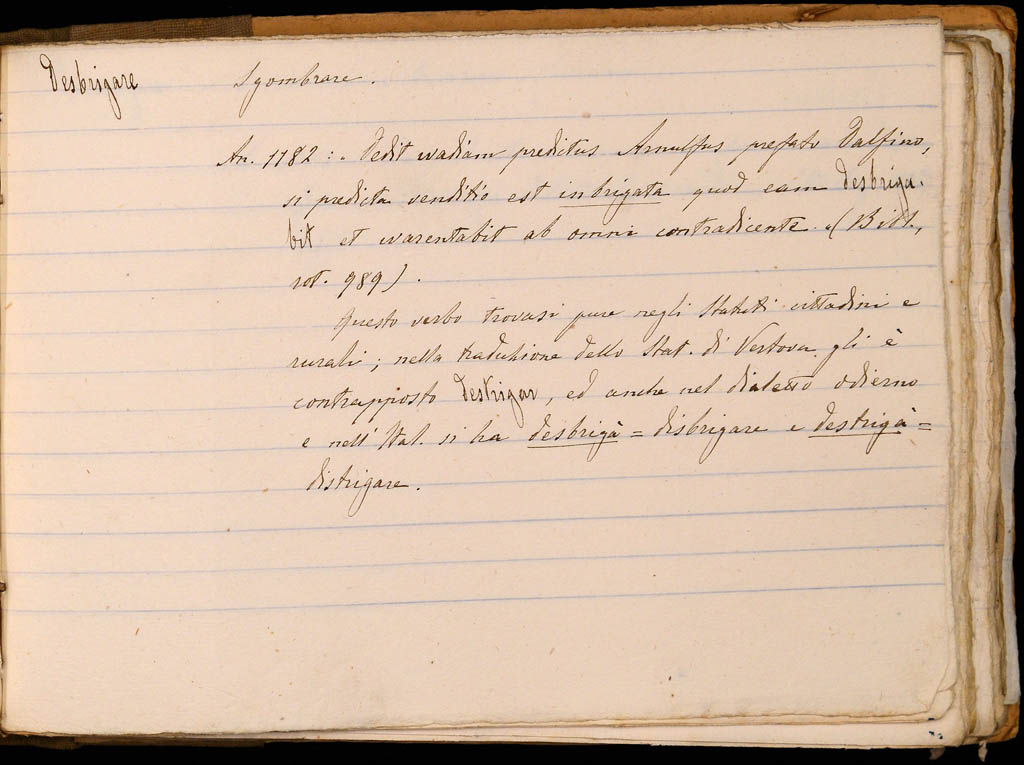 Desbrigare Sgombrare.
An. 1182: "Dedit wadiam predictus Arnulfus prefato Dalfino,
si predicta venditio est inbrigata quod eam desbriga-
bit et warentabit ab omni contradicente" (Bibl.,
rot. 989).
Questo verbo trovasi pure negli Statuti cittadini e
rurali; nella traduzione dello Stat. di Vertova gli è
contrapposto destrigar, ed anche nel dialetto odierno
e nell' Ital. si ha desbrigà = disbrigare e destrigà =
distrigare.